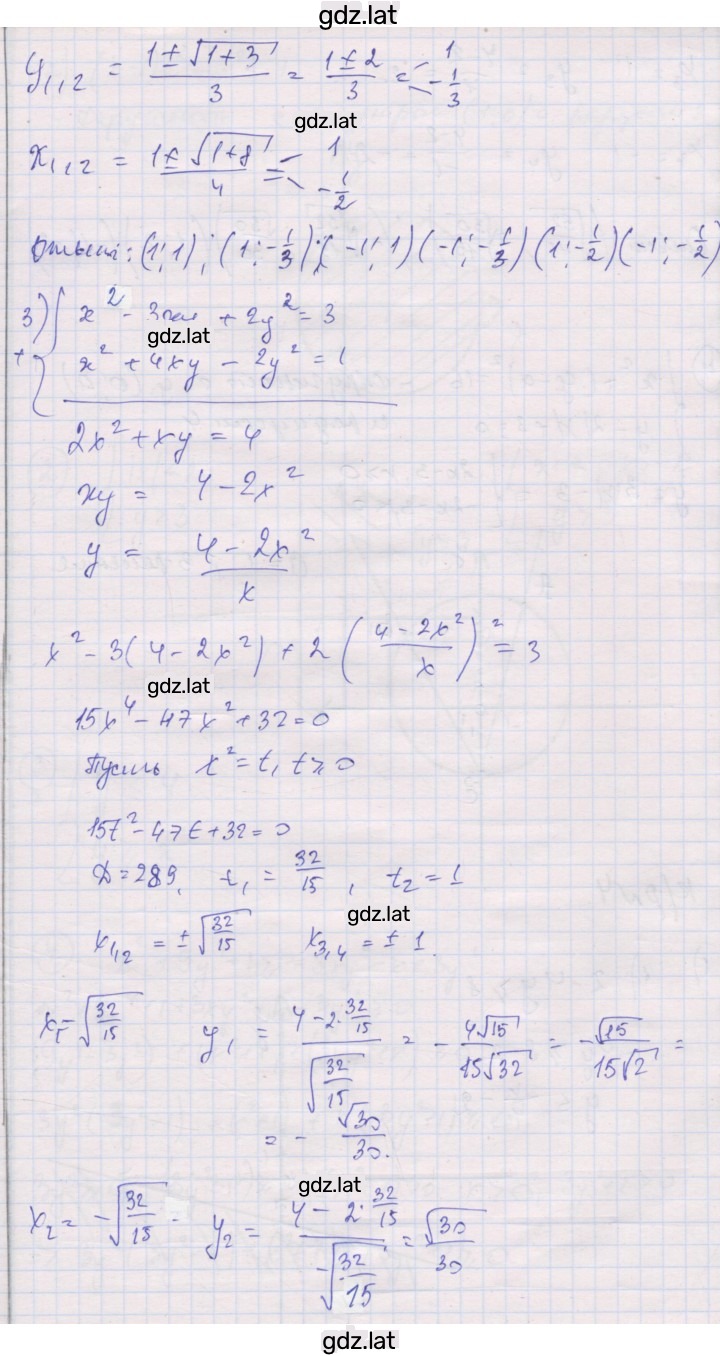 gdz.lat
y₁,₂ = (1 ± √(1+3))/3 = (1 ± 2)/3 = < 1; -1/3
gdz.lat
x₁,₂ = (1 ± √(1+8))/4 = < 1; -1/2
Ответ: (1; 1); (1; -1/3); (-1; 1) (-1; -1/3) (1; -1/2) (-1; -1/2)
3) { x² - 3xy + 2y² = 3
gdz.lat
+ { x² + 4xy - 2y² = 1
2x² + xy = 4
xy = 4 - 2x²
y = (4 - 2x²)/x
x² - 3(4 - 2x²) + 2((4 - 2x²)/x)² = 3
gdz.lat
15x⁴ - 47x² + 32 = 0
Пусть x² = t, t ≥ 0
15t² - 47t + 32 = 0
D = 289, t₁ = 32/15, t₂ = 1
gdz.lat
x₁,₂ = ±√(32/15) x₃,₄ = ± 1.
x₁ = √(32/15) y₁ = (4 - 2·32/15)/√(32/15) = - 4√15/(15√32) = - √15/(15√2) =
= - √30/30.
gdz.lat
x₂ = -√(32/15) y₂ = (4 - 2·32/15)/(-√(32/15)) = √30/30
gdz.lat